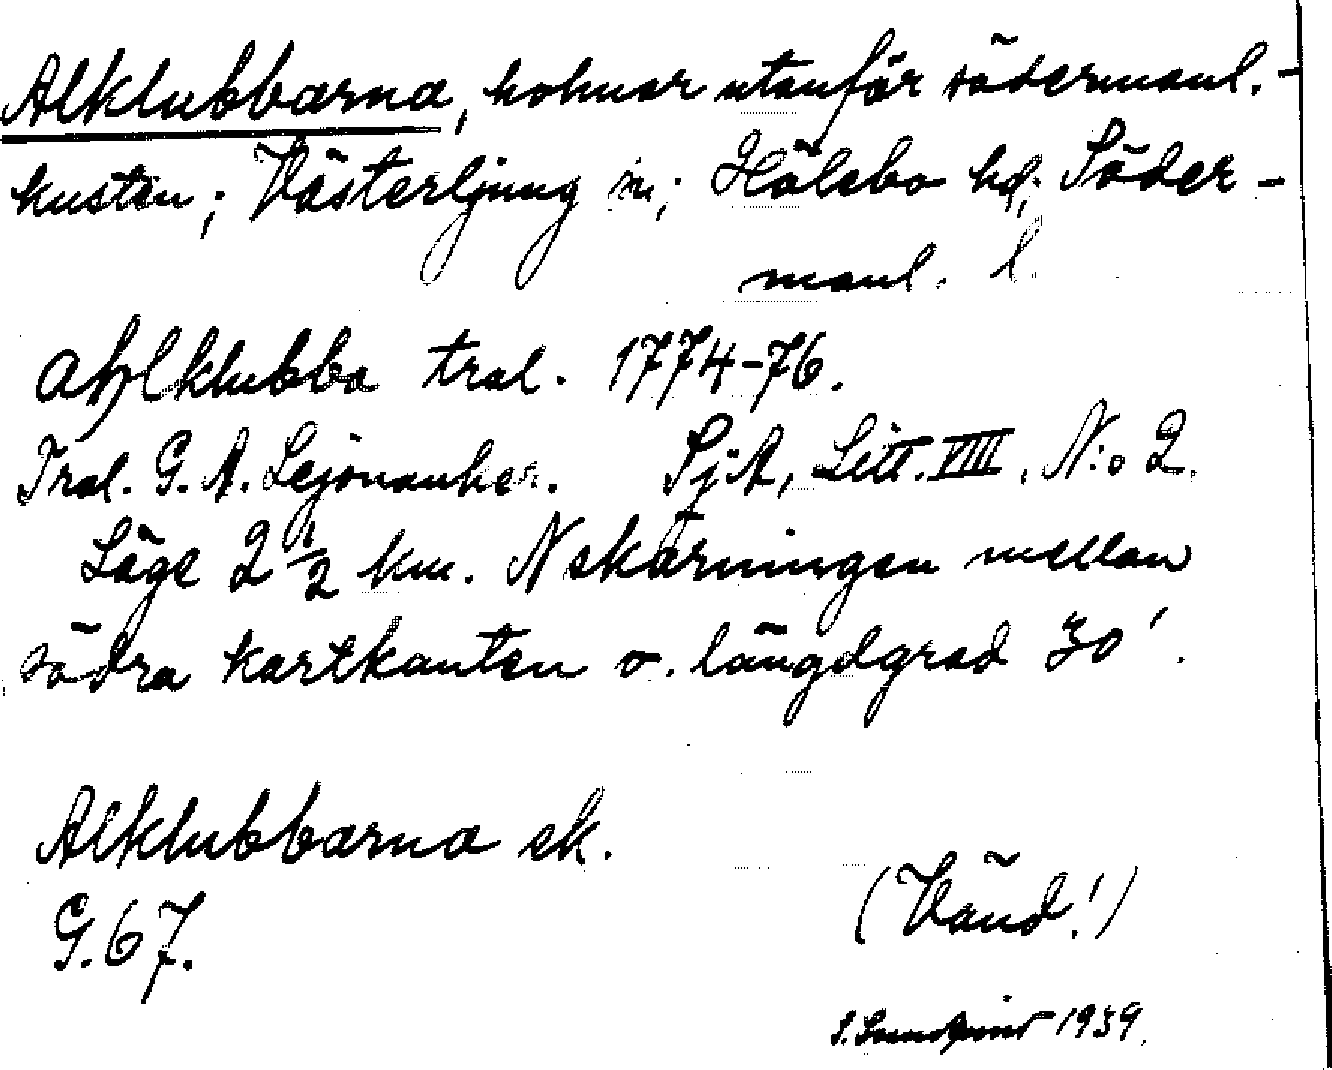 Alklubbarna, holmar utanför södermanl.-
kusten; Västerljung sn; Hölebo hd; Söder-
manl. l.
Ahlklubba tral. 1774-76.
Tral. G. A. Lejonanker. SjA, Litt. VIII, N:o 2.
Läge 2 1/2 km. N skärningen mellan
södra kartkanten o. längdgrad 30'.
Alklubbarna ek.
G. 67.
(Vänd!)
S. Sundqvist 1939.